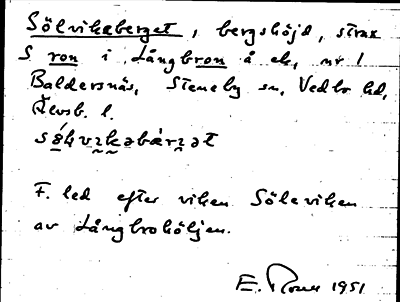 Sölvikaberget, bergshöjd, strax
S ron i Långbron å ek, nr 1
Baldersnäs, Steneby sn, Vedbo hd,
Älvsb. l.
F. led efter viken Söleviken
av Långbrohöljen.
1951